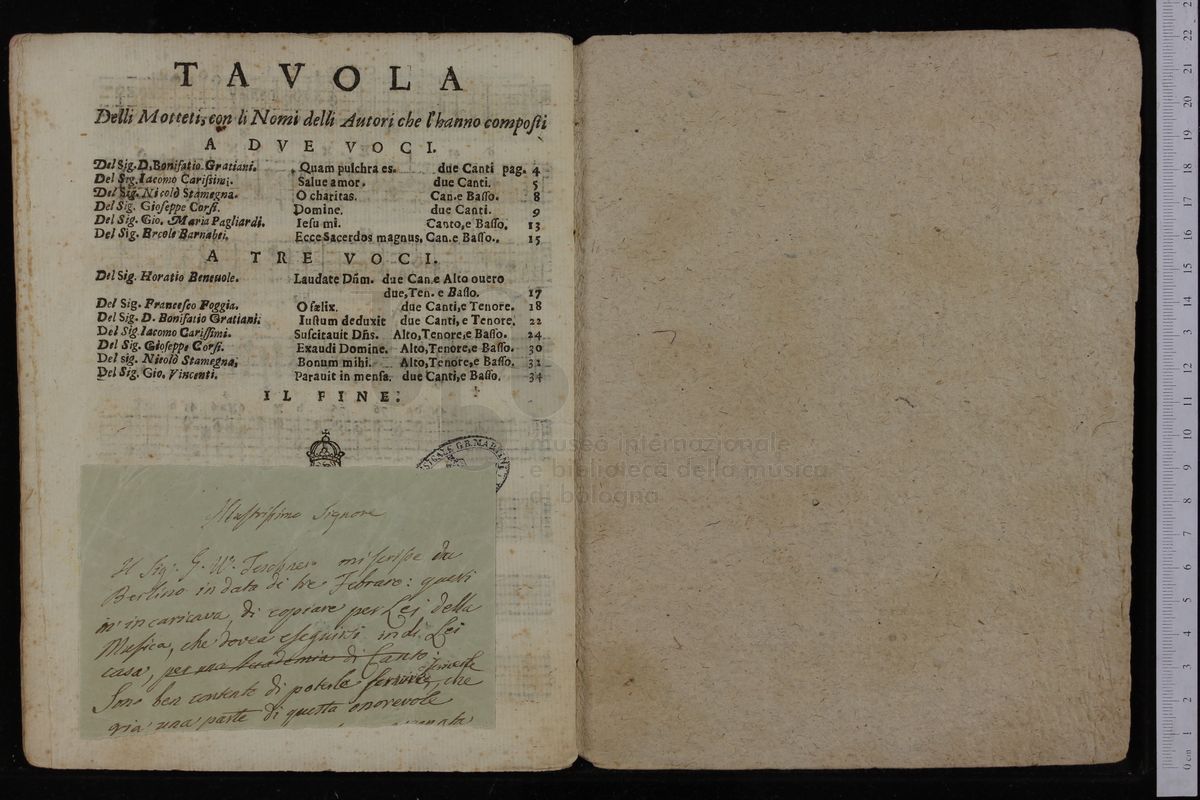 TAVOLA
Delli Motteti, con li Nomi delli Autori che l'hanno composti
A DVE VOCI.
Del Sig. D. Bonifatio Gratiani. Quam pulchra es. due Canti pag. 4
Del Sig. Iacomo Carissimi. Salue amor. due Canti. 5
Del Sig. Nicolò Stamegna. O charitas. Can.e Basso. 8
Del Sig. Gioseppe Corsi. Domine. due Canti. 9
Del Sig. Gio. Maria Pagliardi. Iesu mi. Canto, e Basso. 13
Del Sig. Ercole Barnabei. Ecce Sacerdos magnus. Can.e Basso. 15
A TRE VOCI.
Del Sig. Horatio Beneuole. Laudate Dñm. due Can.e Alto ouero
due, Ten. e Basso. 17
Del Sig. Francesco Foggia. O fælix. due Canti, e Tenore. 18
Del Sig. D. Bonifatio Gratiani. Iustum deduxit due Canti, e Tenore. 22
Del Sig. Iacomo Carissimi. Suscitauit Dñs. Alto, Tenore, e Basso. 24
Del Sig. Gioseppe Corsi. Exaudi Domine. Alto, Tenore, e Basso. 30
Del sig. Nicolò Stamegna. Bonum mihi. Alto, Tenore, e Basso. 32
Del Sig. Gio. Vincenti. Parauit in mensa. due Canti, e Basso. 34
IL FINE.
Illustrissimo Signore
Il Sig. G. W. Teschner mi scrisse da
Berlino in data di tre Febraro: questi
m'incaricava, di copiare per Lei della
Musica, che dovea eseguirsi in di Lei
casa, per una Accademia di Canto:
Sono ben contento di poterle servire, che
già una parte di questa onorevole
museo internazionale
e biblioteca della musica
di bologna